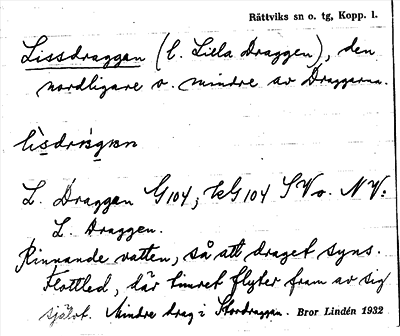 Rättviks sn o. tg, Kopp. l.
Lissdraggen (l. Lilla Draggen), den
nordligare o. mindre av Draggarna.
L. Draggen G104, kG104 SV o. NV.
L. Draggen.
Rinnande vatten, så att draget syns.
Flottled, där timret flyter fram av sig
självt. Mindre drag i Stordraggen. Bror Lindén 1932